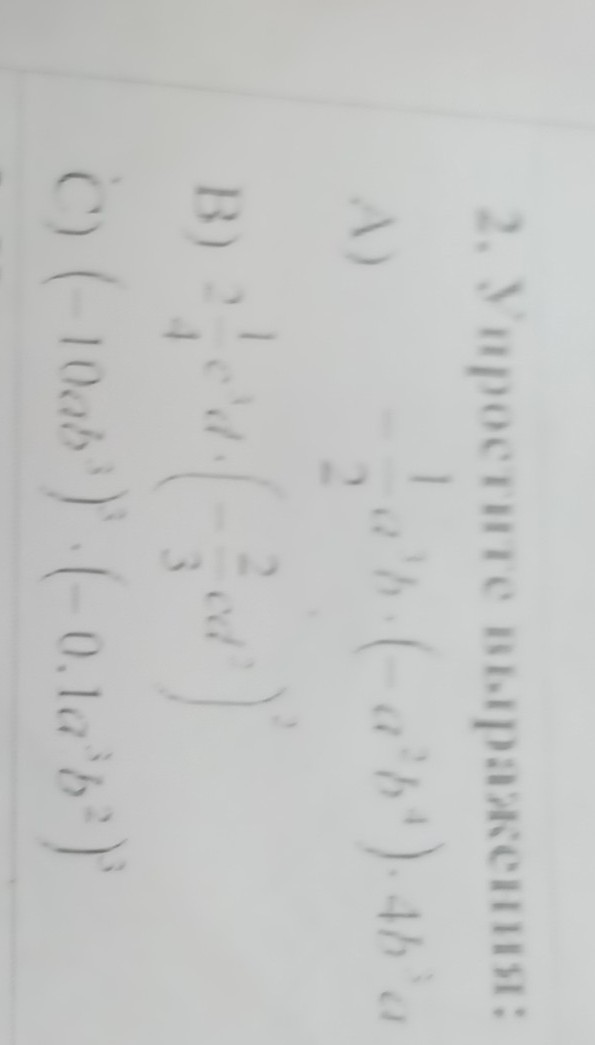 2. Упростите выражения:
A) -\frac{1}{2}a³b·(-a²b⁴)·4b³a
B) 2\frac{1}{4}c³d·(-\frac{2}{3}cd²)²
C) (-10ab³)³·(-0.1a³b²)³